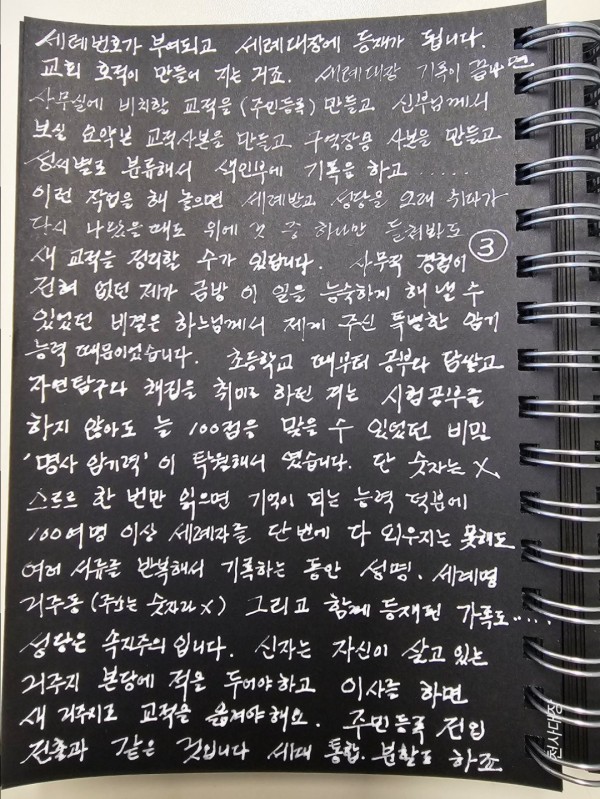 세례번호가 부여되고 세례대장에 등재가 됩니다.
교회 호적이 만들어 지는 거죠. 세례대장 기록이 끝나면
사무실에 비치할 교적을 (주민등록) 만들고 신부님께서
보실 요약본 교적사본을 만들고 구역장용 사본을 만들고
성씨별로 분류해서 색인부에 기록을 하고......
이런 작업을 해 놓으면 세례받고 성당을 오래 쉬다가
다시 나왔을 때도 위에 것 중 하나만 들춰봐도
새 교적을 정리할 수가 있답니다. 사무직 경험이
③
전혀 없던 제가 금방 이 일을 능숙하게 해 낼 수
있었던 비결은 하느님께서 제게 주신 특별한 암기
능력 때문이었습니다. 초등학교 때부터 공부다 담쌓고
자연탐구다 채집을 취미로 하던 저는 시험공부를
하지 않아도 늘 100점을 맞을 수 있었던 비밀
'명사 암기력'이 탁월해서 였습니다. 단 숫자는 X,
스르르 한 번만 읽으면 기억이 되는 능력 덕분에
100여명 이상 세례자를 단번에 다 외우지는 못해도
여러 서류를 반복해서 기록하는 동안 성명, 세례명
거주동 (주소는 숫자라 X) 그리고 함께 등재된 가족도.....
성당은 속지주의 입니다. 신자는 자신이 살고 있는
거주지 본당에 적을 두어야 하고 이사를 하면
새 거주지로 교적을 옮겨야 해요. 주민등록 전입
전출과 같은 것입니다 세대 통합, 분할도 하죠
천사대장